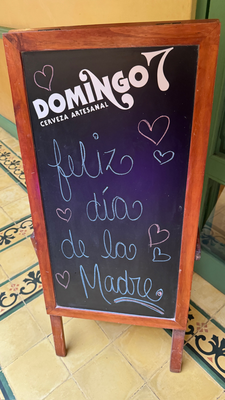 DOMINGO 7
CERVEZA ARTESANAL
feliz
día
de la
Madre